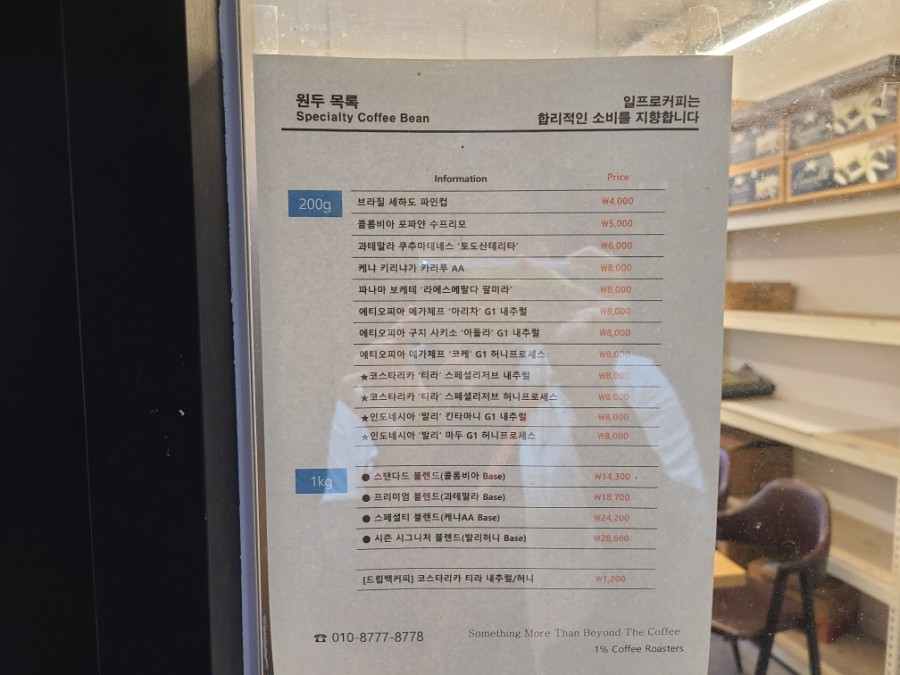 원두 목록
Specialty Coffee Bean
일프로커피는
합리적인 소비를 지향합니다
Information Price
200g
브라질 세하도 파인컵 ₩4,000
콜롬비아 포파얀 수프리모 ₩5,000
과테말라 쿠추마데네스 '토도산테리타' ₩6,000
케냐 키리냐가 카리루 AA ₩8,000
파나마 보케테 '라에스메랄다 팔미라' ₩8,000
에티오피아 예가체프 '아리차' G1 내추럴 ₩8,000
에티오피아 구지 사키소 '아둘라' G1 내추럴 ₩8,000
에티오피아 예가체프 '코케' G1 허니프로세스 ₩8,000
★코스타리카 '티라' 스페셜리저브 내추럴 ₩8,000
★코스타리카 '티라' 스페셜리저브 허니프로세스 ₩8,000
★인도네시아 '발리' 킨타마니 G1 내추럴 ₩8,000
★인도네시아 '발리' 마두 G1 허니프로세스 ₩8,000
1kg
● 스탠다드 블렌드(콜롬비아 Base) ₩14,300
● 프리미엄 블렌드(과테말라 Base) ₩18,700
● 스페셜티 블렌드(케냐AA Base) ₩24,200
● 시즌 시그니처 블렌드(발리허니 Base) ₩28,600
[드립백커피] 코스타리카 티라 내추럴/허니 ₩1,200
☎ 010-8777-8778
Something More Than Beyond The Coffee
1% Coffee Roasters